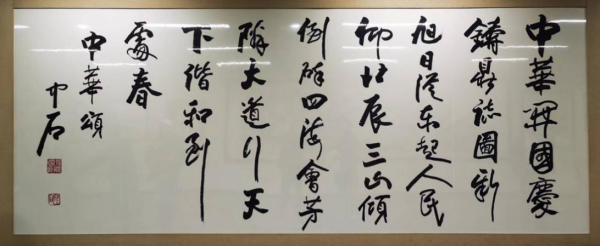 中華開國慶
鑄鼎誌圖新
旭日從東起人民
仰北辰三山傾
倒碎四海會芳
隣大道行天
下諧和到
處春
中華頌
中石